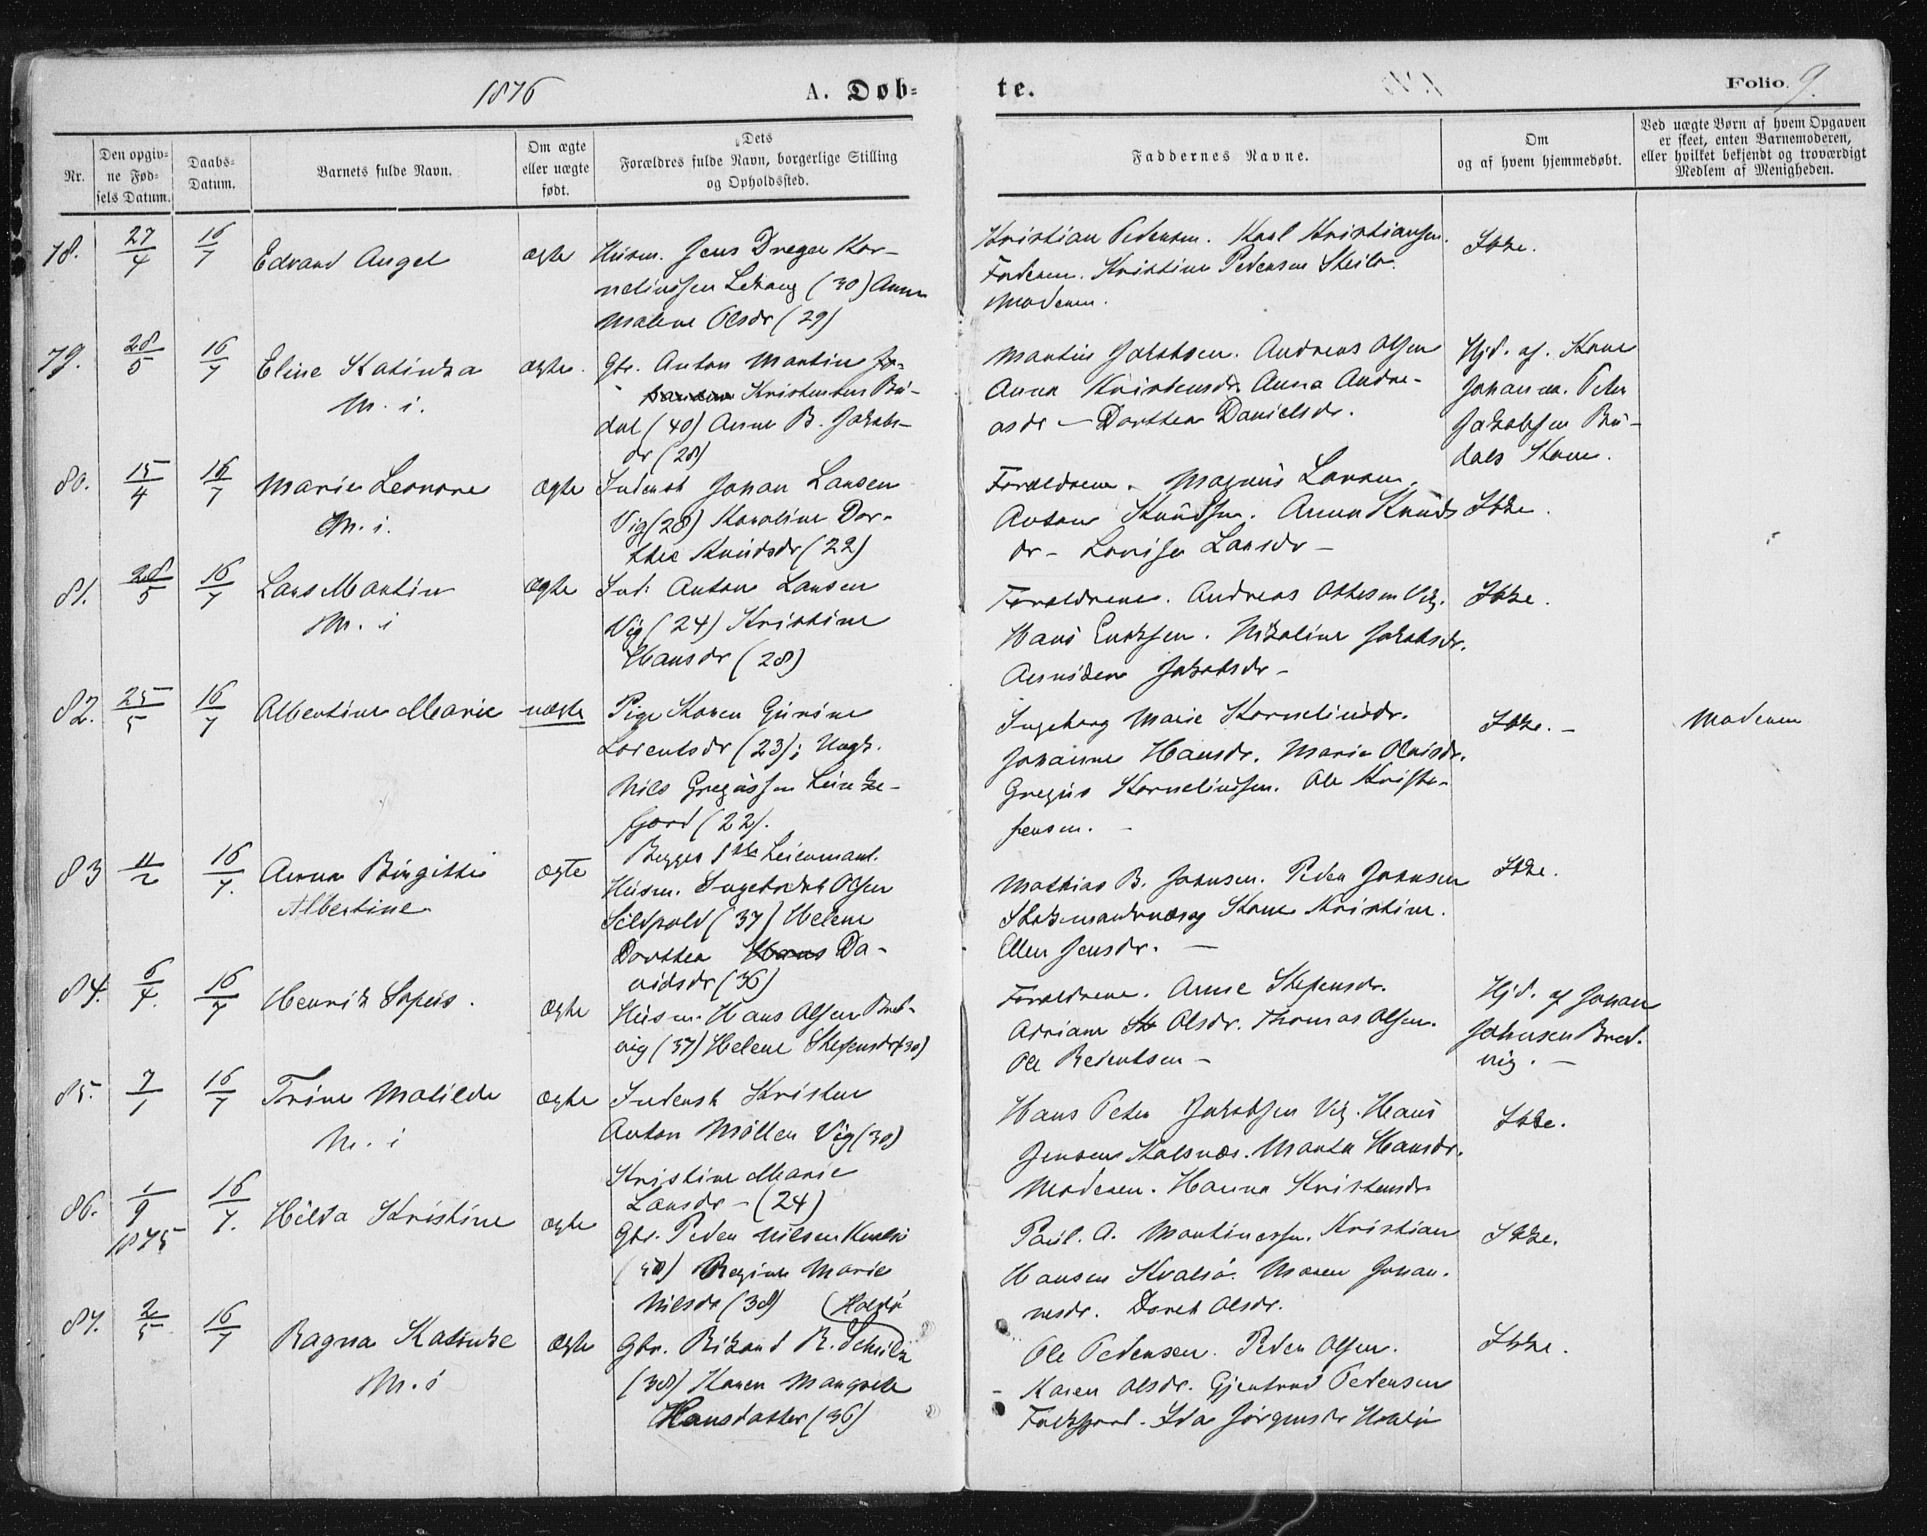 1876
A. Døb-
te.
Folio. 9.
Nr.
Den opgiv-
ne Fød-
sels Datum.
Daabs-
Datum.
Barnets fulde Navn.
Om ægte
eller uægte
født.
Dets
Forældres fulde Navn, borgerlige Stilling
og Opholdssted.
Faddernes Navne.
Om
og af hvem hjemmedøbt.
Ved uægte Børn af hvem Opgaven
er skeet, enten Barnemoderen,
eller hvilket bekjendt og troværdigt
Medlem af Menigheden.
78. 27/4 16/7 Edvard Angel ægte
Husm. Jens Dreyer Kor-
neliussen Lekang (30) Anna
Malene Olsdr (29)
Kristian Pedersen. Karl Kristiansen.
Faderen. Kristine Pedersen
Moderen.
Ikke.
79. 28/5 16/7 Eline Katinka ægte.
M. i.
Gbr. Anton Martin
Kristensen Bu-
dal (40) Anne B. Jakobs-
dr (28)
Martin Jakobsen. Andreas Olsen
Anna Kristensdr Anna Andre-
asdr – Dorthea Danielsdr.
Hjd. af. Kone
Johanna. Peter
Jakobsen Bu-
dals Kone.
80. 15/4 16/7 Marie Leonore ægte
M. i.
Inderst Johan Larsen
Vig (28) Karoline Dor-
thea Knudsdr (22)
Forældrene. Magnus Larsen.
Anton Knudsen. Anna Knuds
dr – Lovise Larsdr –
Ikke.
81. 28/5 16/7 Lars Martin ægte
M. i
Ind. Anton Larsen
Vig (24) Kristine
Hansdr (28)
Forældrene. Andreas Ottesen Vig.
Hans Eriksen. Nikoline Jakobsdr.
Jakobsdr –
Ikke.
82. 25/5 16/7 Albertine Marie uægte
Pige Karen Gurine
Lorentsdr (23); Ungk.
Nils Gregussen Leirike-
fjord (22).
Begges 1ste Leiermaal.
Ingeborg Marie Korneliusdr.
Johanne Hansdr. Marie Olaisdr.
Gregus Korneliussen. Ole Kristo-
fersen. –
Ikke. –
Moderen
83 11/2 16/7. Anna Birgitte ægte
Albertine
Husm. Ingebrikt Olsen
Sildpold (37) Helene
Dorthea Hans Da-
vidsdr (36)
Mathias B. Johnsen. Peder Johnsen
Kone Kristine.
Ellen Jensdr. –
Ikke.
84. 6/4. 16/7 Henrik Sofus. ægte
Husm. Hans Olsen Bred-
vig (37) Helene Stefensdr (30)
Forældrene. Anne Stefensdr.
Adriane St Olsdr. Thomas Olsen.
Ole Berentsen –
Hjd. af Johan
Johnsen Bred.
vig. –
85. 7/1 16/7 Trine Matilde ægte
M. i
Inderst Kristen
Anton Møller Vig (30)
Kristine Marie
Larsdr – (24)
Hans Peter Jakobsen Vig. Hans
Jensen Kalsnæs. Marta Hansdr.
Moderen. Hanna Kristensdr
Ikke.
86. 1/9 1875 16/7. Hilda Kristine ægte
Gbr. Peder Nilsen
(40) Regine Marie
Nilsdr (38)
Paul. A. Martinussen. Kristian
Hansen Kvalsø. Maren Johan-
nesdr. Doret Olsdr.
Ikke.
87. 2/5. 16/7 Ragna Katinke ægte
M. i
(Holdø
Gbr. Rikard R. Schulz
(38) Karen Margrete
Hansdatter (36)
Ole Pedersen. Peder Olsen.
– Karen Olsdr. Gjertrud Pedersen
Ida Jørgensdr Holdø
Ikke.